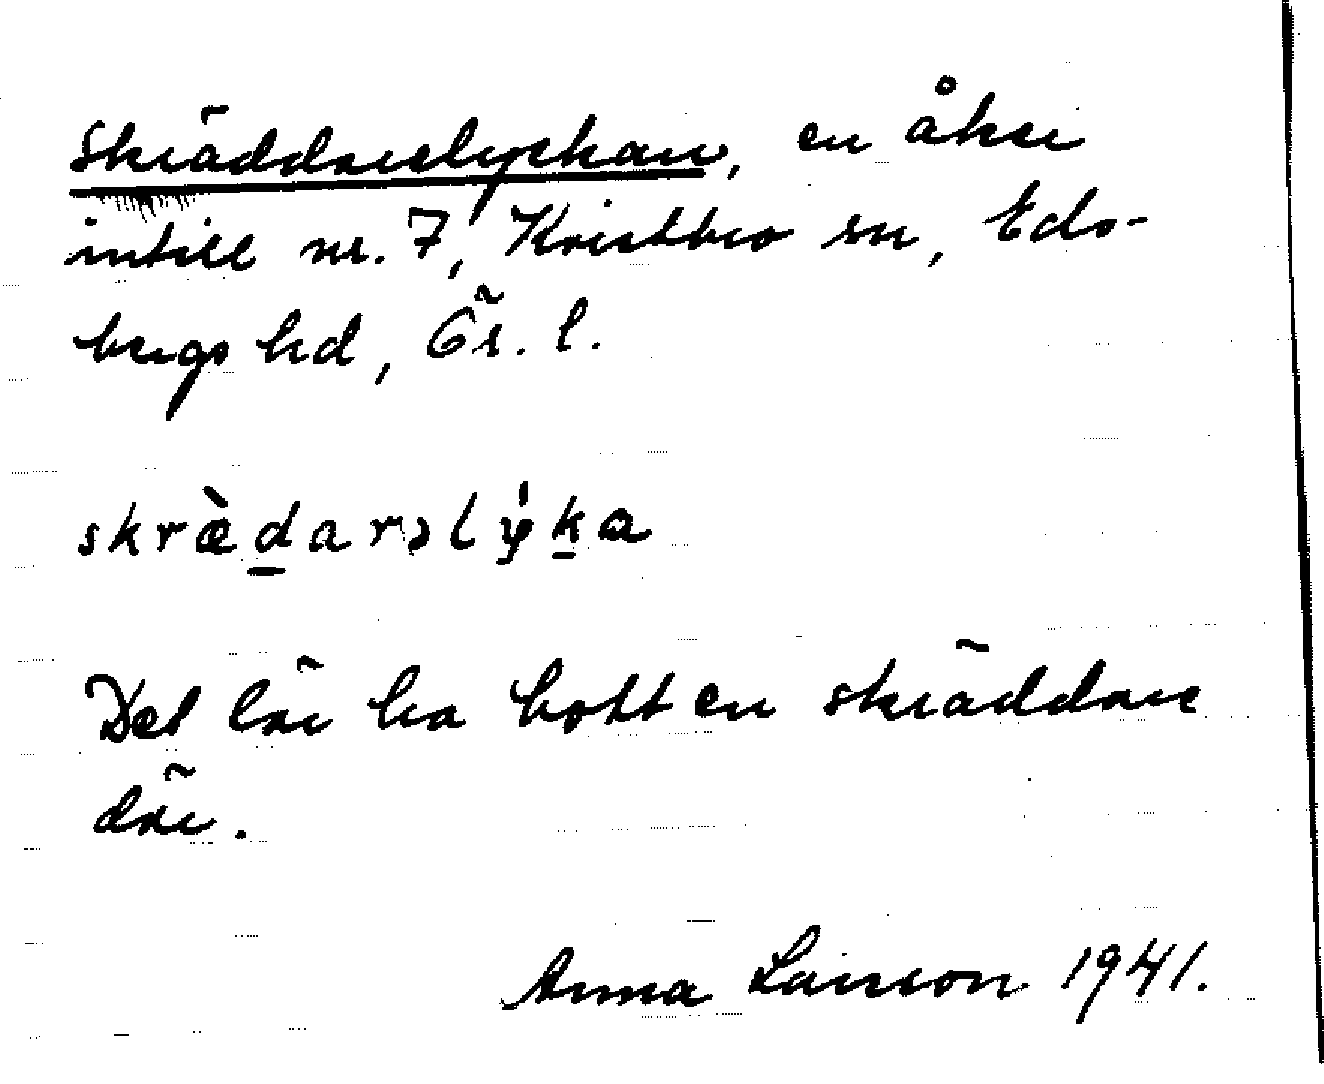 Skräddarelyckan, en åker
intill nr. 7, Kvistbro sn, Eds-
bergs hd, Ör. l.
skræ̀darəlýka
Det lär ha bott en skräddare
där.
Anna Larsson 1941.